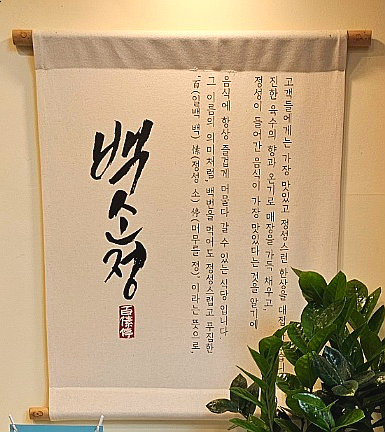 고객들에게는 가장 맛있고 정성스런 한상을 대접
진한 육수의 향과 온기로 매장을 가득 채우고,
정성이 들어간 음식이 가장 맛있다는 것을 알기에
음식에 항상 즐겁게 머물다 갈 수 있는 식당입니다
그 이름의 의미처럼, 백번을 먹어도 정성스럽고 푸짐한
百(일백 백) 愫(정성 소) 停(머무를 정)' 이라는 뜻으로,
백소정
百愫停